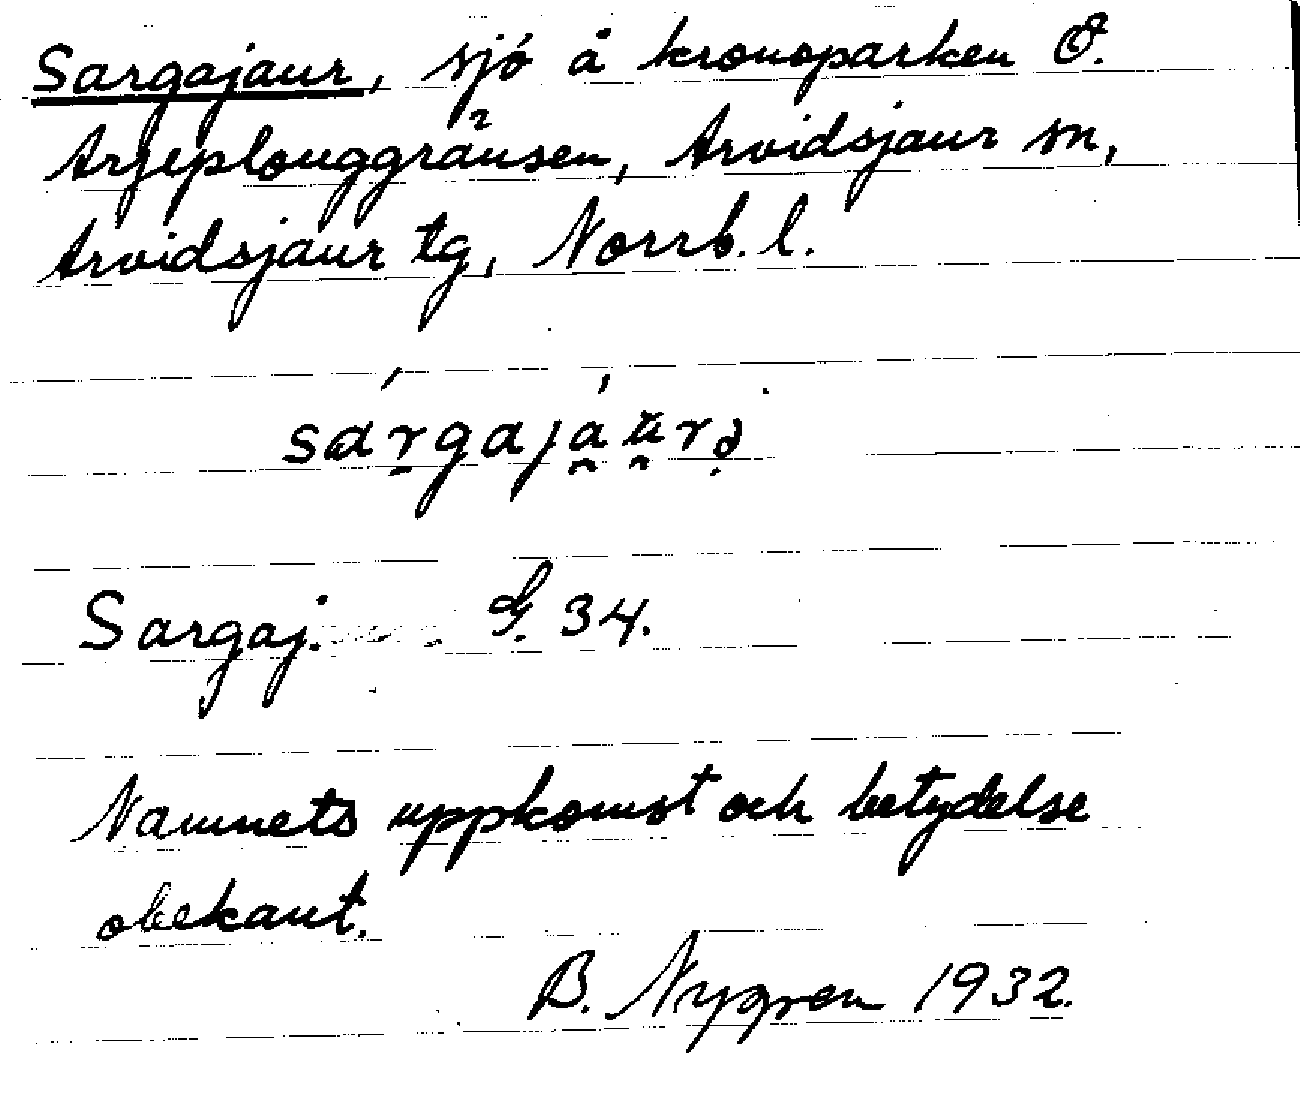 Sargajaur, sjö å kronoparken Ö.
Arjeplouggränsen, Arvidsjaur sn,
Arvidsjaur tg, Norrb. l.
Sargaj. G. 34.
Namnets uppkomst och betydelse
obekant.
B. Nygren 1932.